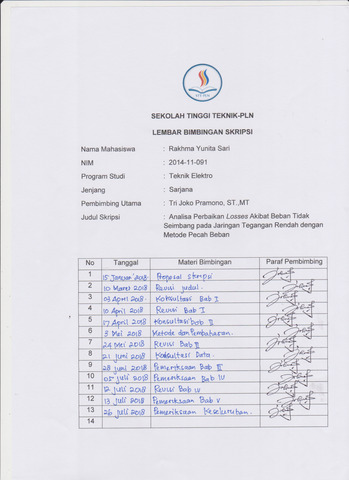 STT-PLN
SEKOLAH TINGGI TEKNIK-PLN
LEMBAR BIMBINGAN SKRIPSI
Nama Mahasiswa : Rakhma Yunita Sari
NIM : 2014-11-091
Program Studi : Teknik Elektro
Jenjang : Sarjana
Pembimbing Utama : Tri Joko Pramono, ST.,MT
Judul Skripsi : Analisa Perbaikan Losses Akibat Beban Tidak
Seimbang pada Jaringan Tegangan Rendah dengan
Metode Pecah Beban
No Tanggal Materi Bimbingan Paraf Pembimbing
1 15 Januari 2018 Proposal skripsi
2 10 Maret 2018 Revisi judul.
3 03 April 2018 Konsultasi Bab I
4 10 April 2018 Revisi Bab I
5 17 April 2018 Konsultasi bab II
6 3 Mei 2018 Metode dan Pembahasan.
7 24 Mei 2018 Revisi Bab II
8 21 juni 2018 Konsultasi Data.
9 28 juni 2018 Pemeriksaan Bab III
10 05 juli 2018 Pemeriksaan Bab IV
11 12 juli 2018 Revisi Bab IV
12 13 juli 2018 Pemeriksaan Bab V
13 26 juli 2018 Pemeriksaan Keseluruhan.
14